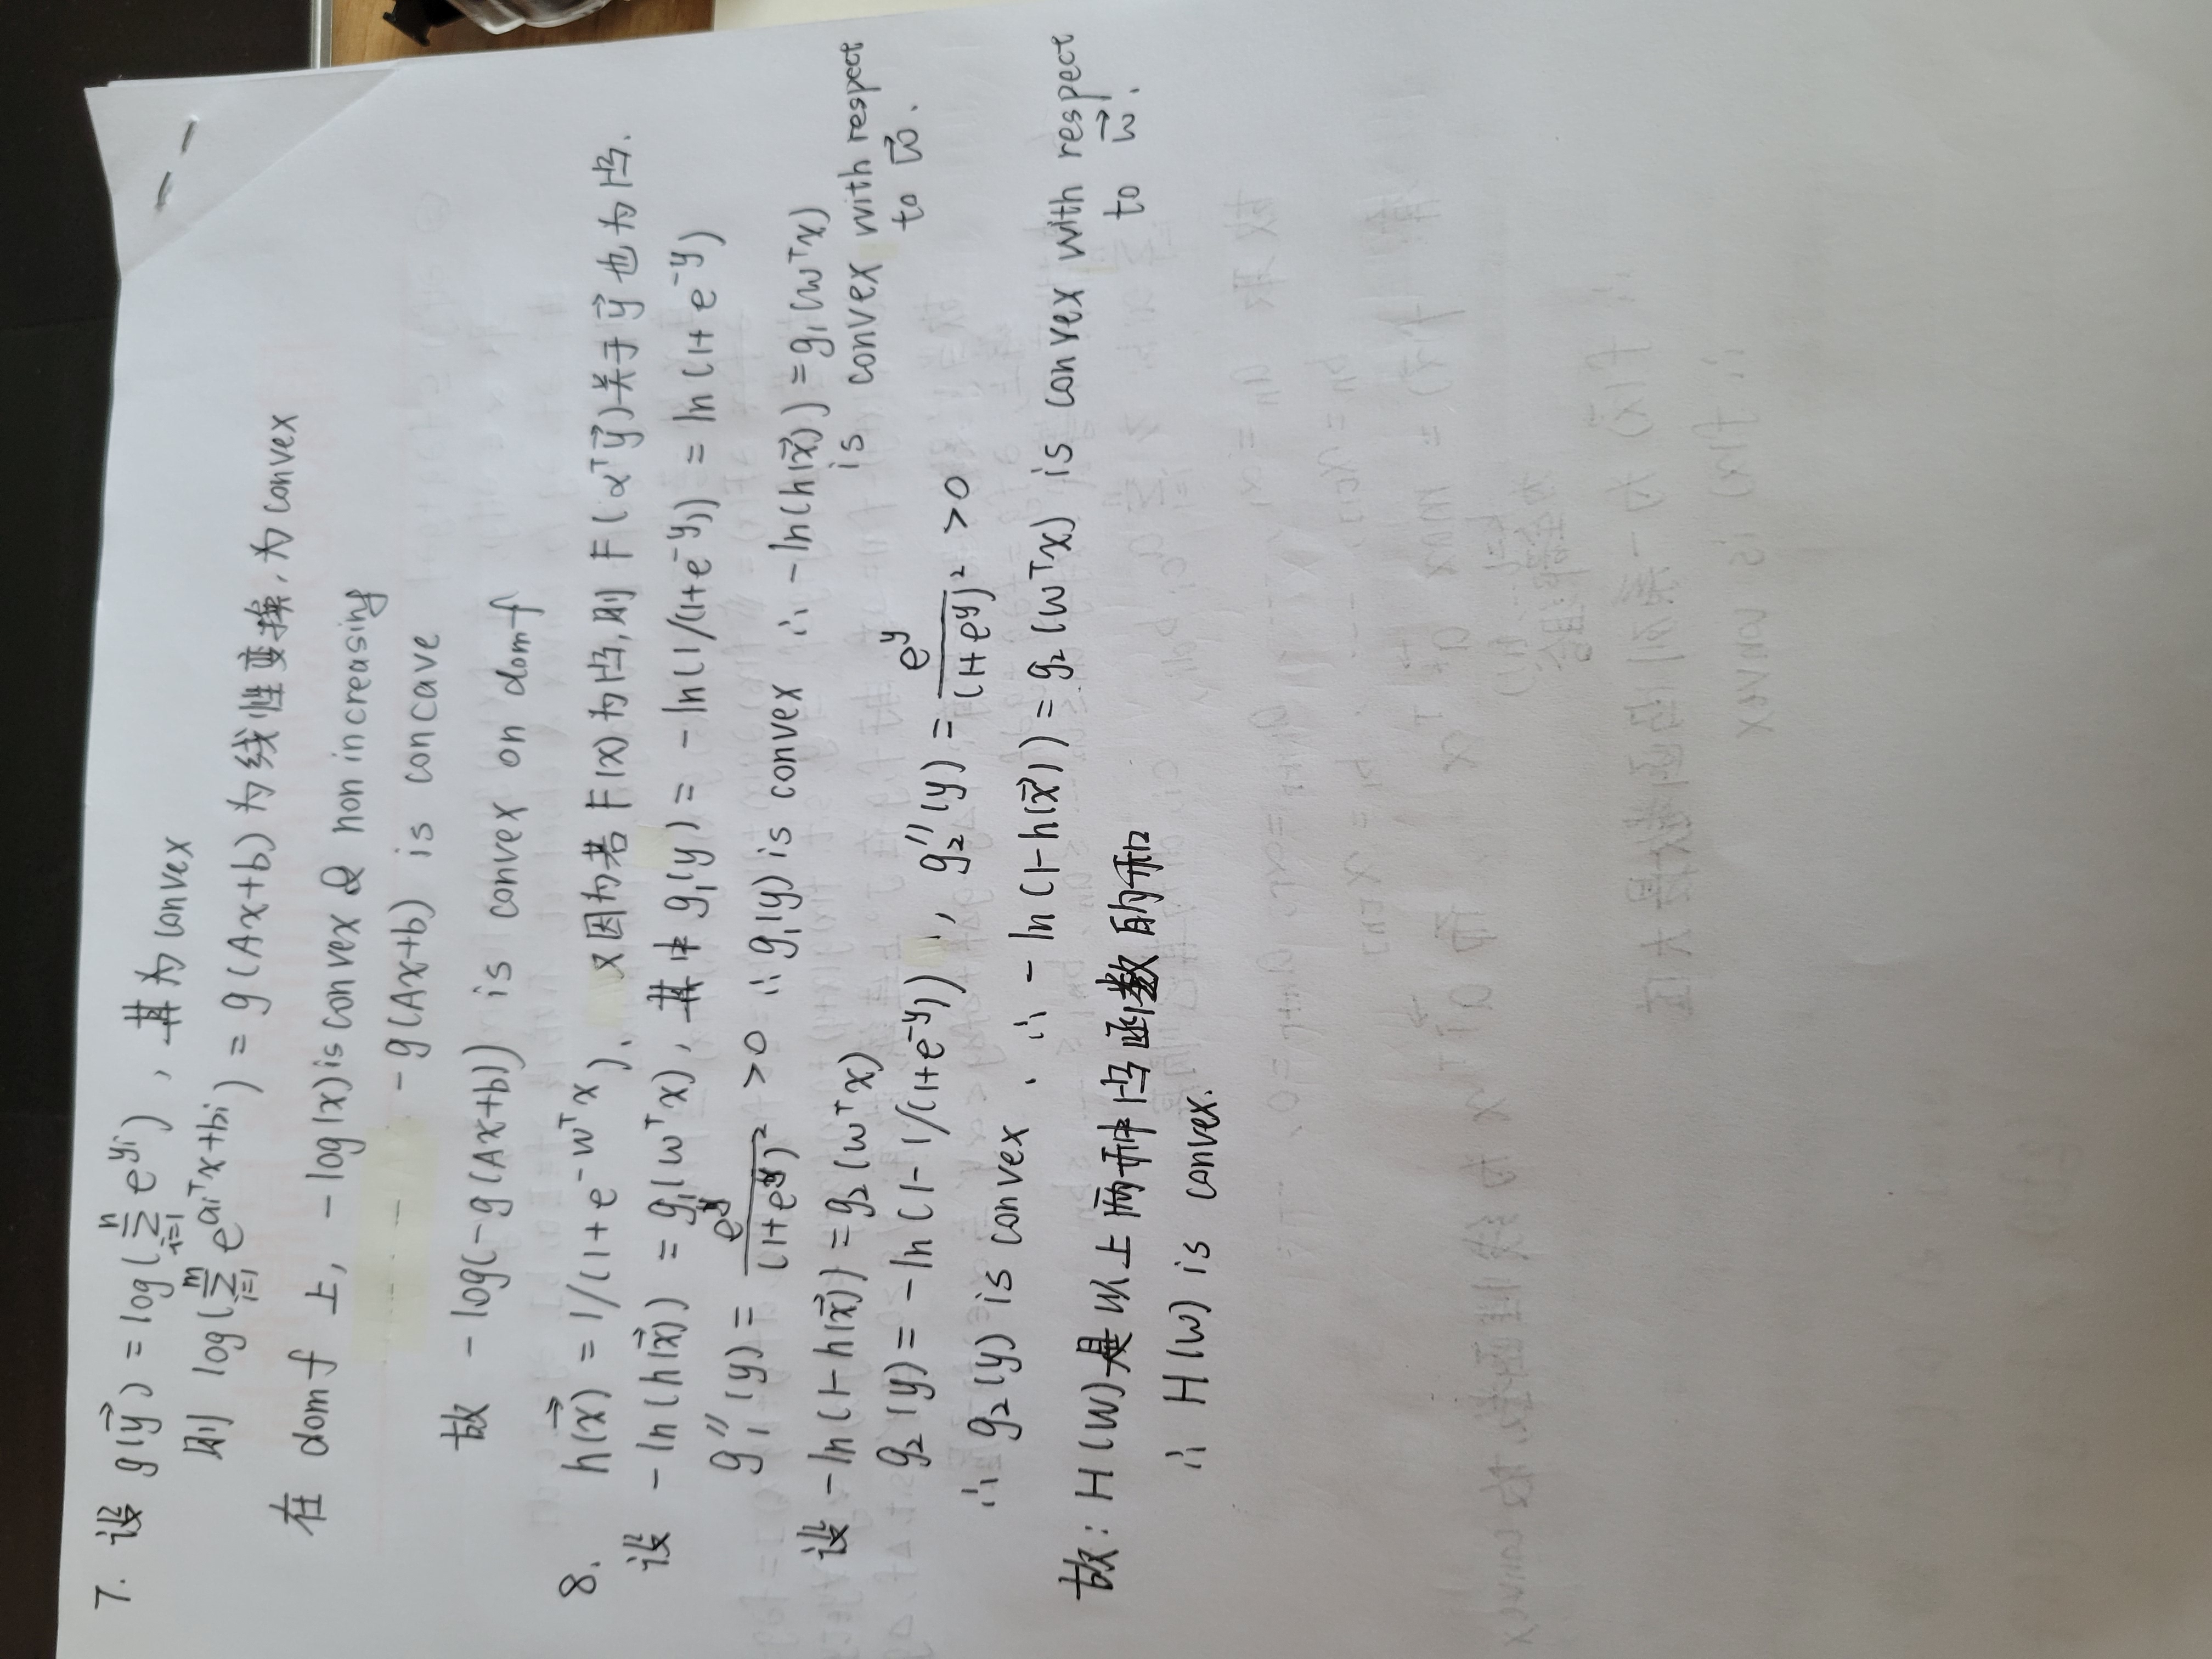 7. 设 g(y⃗) = log(∑_{i=1}^{n} e^{yi}), 其为 convex
则 log(∑_{i=1}^{m} e^{ai^T x+bi}) = g(Ax+b) 为线性变换, 为 convex
在 dom f 上, -log(x) is convex & non increasing
-g(Ax+b) is concave
故 -log(-g(Ax+b)) is convex on dom f
8. h(x⃗) = 1/(1+e^{-w^T x}). 又因为若 F(x) 为凸, 则 F(α^T y⃗) 关于 y⃗ 也为凸.
设 -ln(h(x⃗)) = g₁(w^T x), 其中 g₁(y) = -ln(1/(1+e^{-y})) = ln(1+e^{-y})
g₁''(y) = e^y/(1+e^y)² >0 ∴ g₁(y) is convex ∴ -ln(h(x⃗)) = g₁(w^T x)
is convex with respect
to w⃗.
设 -ln(1-h(x⃗)) = g₂(w^T x)
g₂(y) = -ln(1-1/(1+e^{-y})), g₂''(y) = e^y/(1+e^y)² >0
∴ g₂(y) is convex. ∴ -ln(1-h(x⃗)) = g₂(w^T x) is convex with respect
to w⃗.
故: H(W) 是以上两种凸函数的和
∴ H(W) is convex.